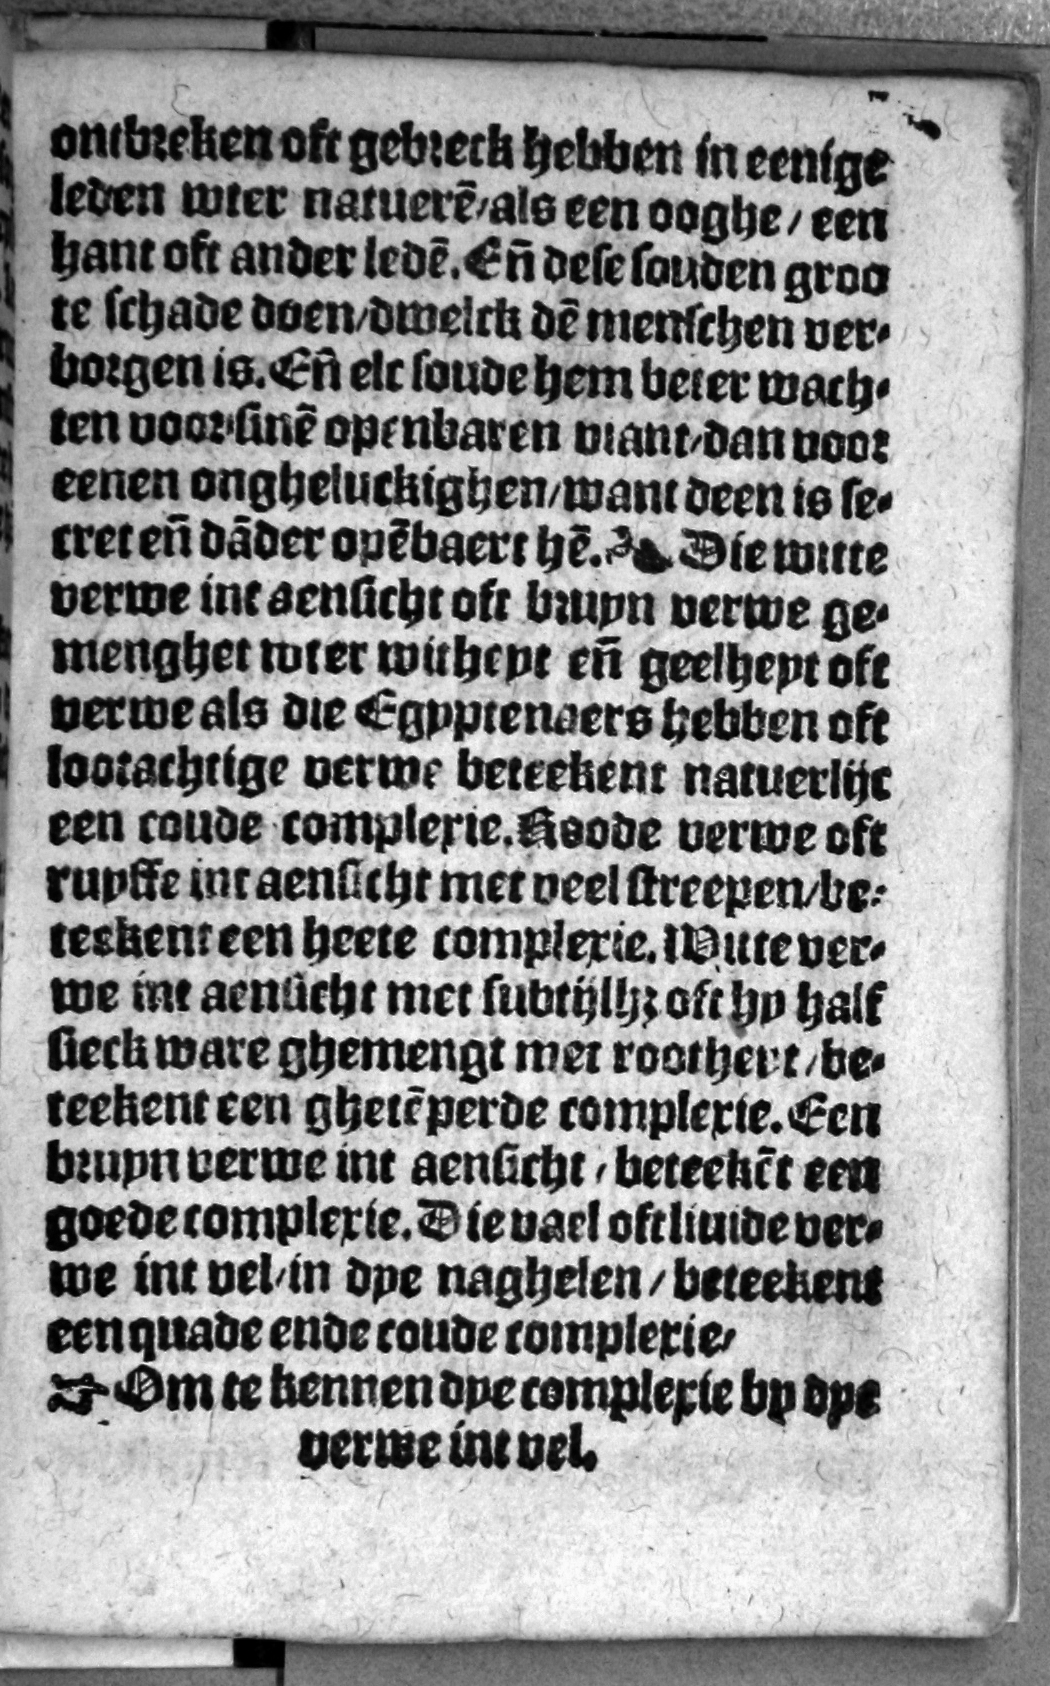 ontbreken oft gebreck hebben in eenige
leden wter natuerē/als een ooghe/ een
hant oft ander ledē. Eñ dese souden groo
te schade doen/dwelck dē menschen ver-
borgen is. Eñ elc soude hem beter wach-
ten voor sinē openbaren viant/dan voor
eenen ongheluckighen/want deen is se-
cret eñ dāder opēbaert hē. ❧ Die witte
verwe int aensicht oft bruyn verwe ge-
menghet wter witheyt eñ geelheyt oft
verwe als die Egyptenaers hebben oft
lootachtige verwe beteekent natuerlijc
een coude complexie. Roode verwe oft
ruyffe int aensicht met veel streepen/be-
teekent een heete complexie. Witte ver-
we int aensicht met subtijlhz oft hy half
sieck ware ghemengt met rootheyt/be-
teekent een ghetēperde complexie. Een
bruyn verwe int aensicht/beteekēt een
goede complexie. Die vael oft liuide ver-
we int vel/in dye naghelen/beteekent
een quade ende coude complexie/
☞ Om te kennen dye complexie by dye
verwe int vel.